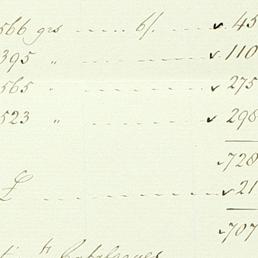 566 grs ..... 6/. ..... ✓ 45
395 " ..... ✓ 110
565 " ..... ✓ 275
523 " ..... ✓ 298
✓ 728
£ ..... ✓ 21
✓ 707